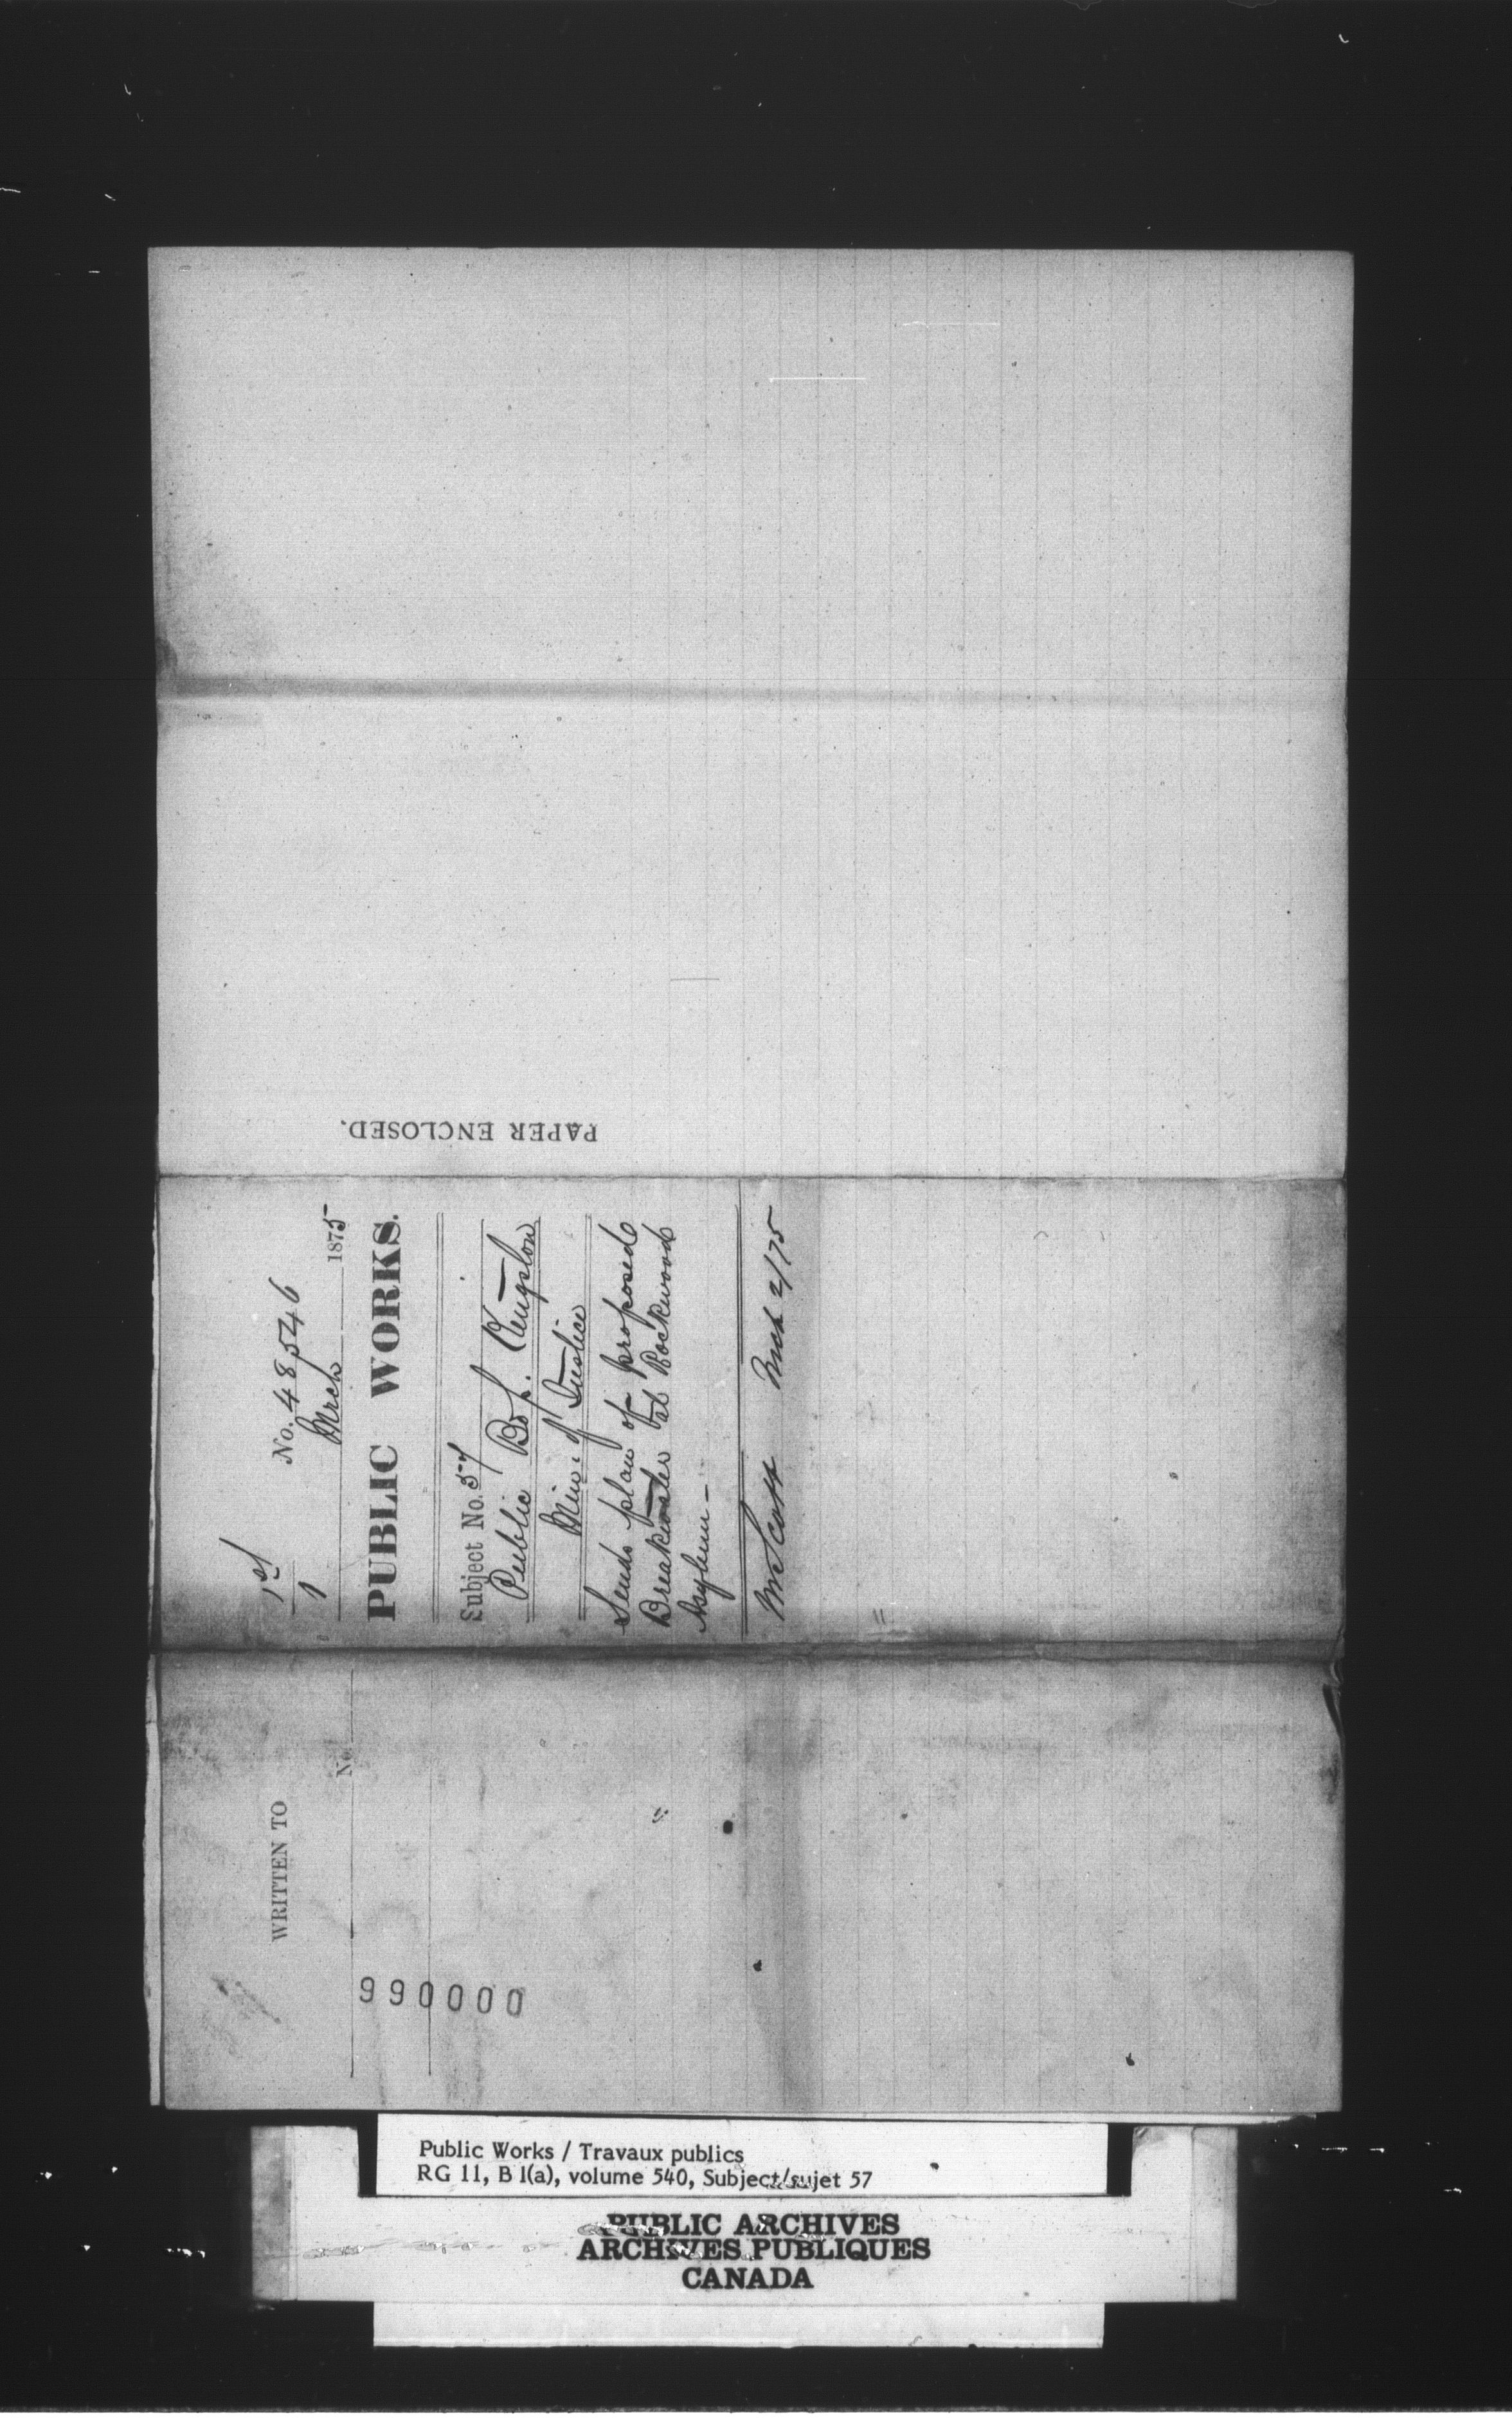 PAPER ENCLOSED.
1st
1
No. 48546
Mrch 1875
PUBLIC WORKS.
Subject No. 57
Public Bs/. Kingston
Min: of Justice
Sends plan of proposed
Breakwater at Rockwood
Asylum –
Mr Scott Mch 2/75
WRITTEN TO
No.
990000
Public Works / Travaux publics
RG 11, B 1(a), volume 540, Subject/sujet 57
PUBLIC ARCHIVES
ARCHIVES PUBLIQUES
CANADA